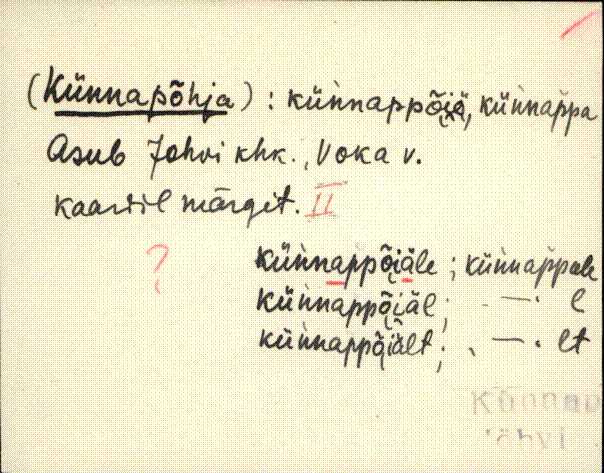 (Künnapõhja) : künnappõi̯ä, künnappa
Asub Johvi khk., Voka v.
kaardil märgit. II
?
künnappõi̯äle ; künnappale
künnappõi̯äl ; . — . l
künnappõi̯ält ; . — . lt
Künnap